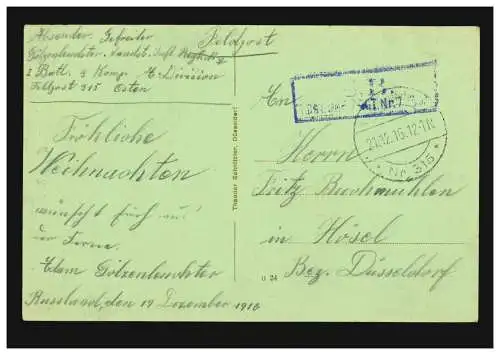 Absender: Gefreiter
Götzenleuchter Landst. Inft. Regt.
I Batl. 4 Komp. Division
Feldpost 315 Osten
Feldpost
Fröhliche
Weihnachten
wünscht Euch aus
der Ferne
Adam Götzenleuchter
Russland, den 19 Dezember 1916
Theodor Schnittzler, Düsseldorf
An
21.12.16.12-1N
* Nr. 315 *
Herrn
Fritz Buchmühlen
in Hösel
Bez. Düsseldorf
U 24